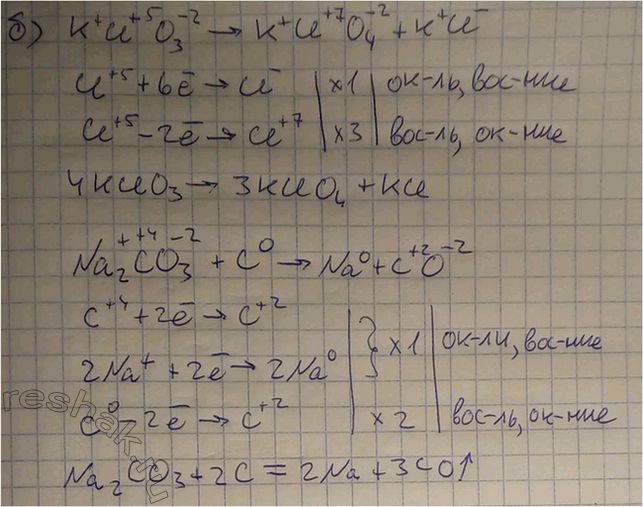 б) K⁺Cl⁺⁵O₃⁻² → K⁺Cl⁺⁷O₄⁻² + K⁺Cl⁻
Cl⁺⁵ + 6ē → Cl⁻ | ×1 | ок-ль, вос-ние
Cl⁺⁵ - 2ē → Cl⁺⁷ | ×3 | вос-ль, ок-ние
4KClO₃ → 3KClO₄ + KCl
Na₂⁺C⁺⁴O₃⁻² + C⁰ → Na⁰ + C⁺²O⁻²
C⁺⁴ + 2ē → C⁺²
2Na⁺ + 2ē → 2Na⁰ | } ×1 | ок-ли, вос-ние
C⁰ - 2ē → C⁺² | ×2 | вос-ль, ок-ние
Na₂CO₃ + 2C = 2Na + 3CO↑
reshak.ru